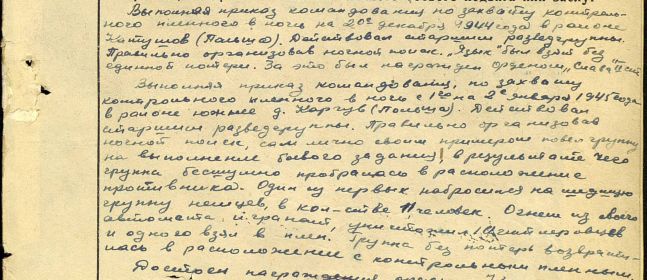 Выполняя приказ командования по захвату контроль-
ного пленного в ночь на 20е декабря 1944 года в районе
(Польша). Действовал старшим разведгруппы.
Правильно организовав ночной поиск. „Язык" был взят без
единной потери. За это был награжден орденом „Слава" II ст
Выполняя приказ командования, по захвату
контрольного пленного в ночь с на 2е января 1945 года
в районе южнее д. Каргув (Польша). Действовал
старшим разведгруппы. Правильно организовав
ночной поиск, сам лично своим примером повел группу
на выполнение боевого задания, в результате чего
группа бесшумно пробралась в расположение
противника. Один из первых набросился на идущую
группу немцев, в кол-стве 11 человек. Огнем из своего
автомата и гранат, уничтожил гитлеровцев
и одного взял в плен. Группа без потерь возврати-
лась в расположение с контрольным пленным.
Достоин награждения